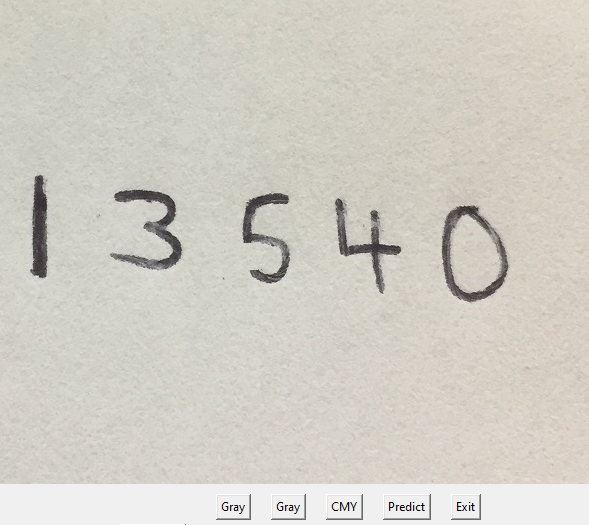 1 3 5 4 0
Gray Gray CMY Predict Exit